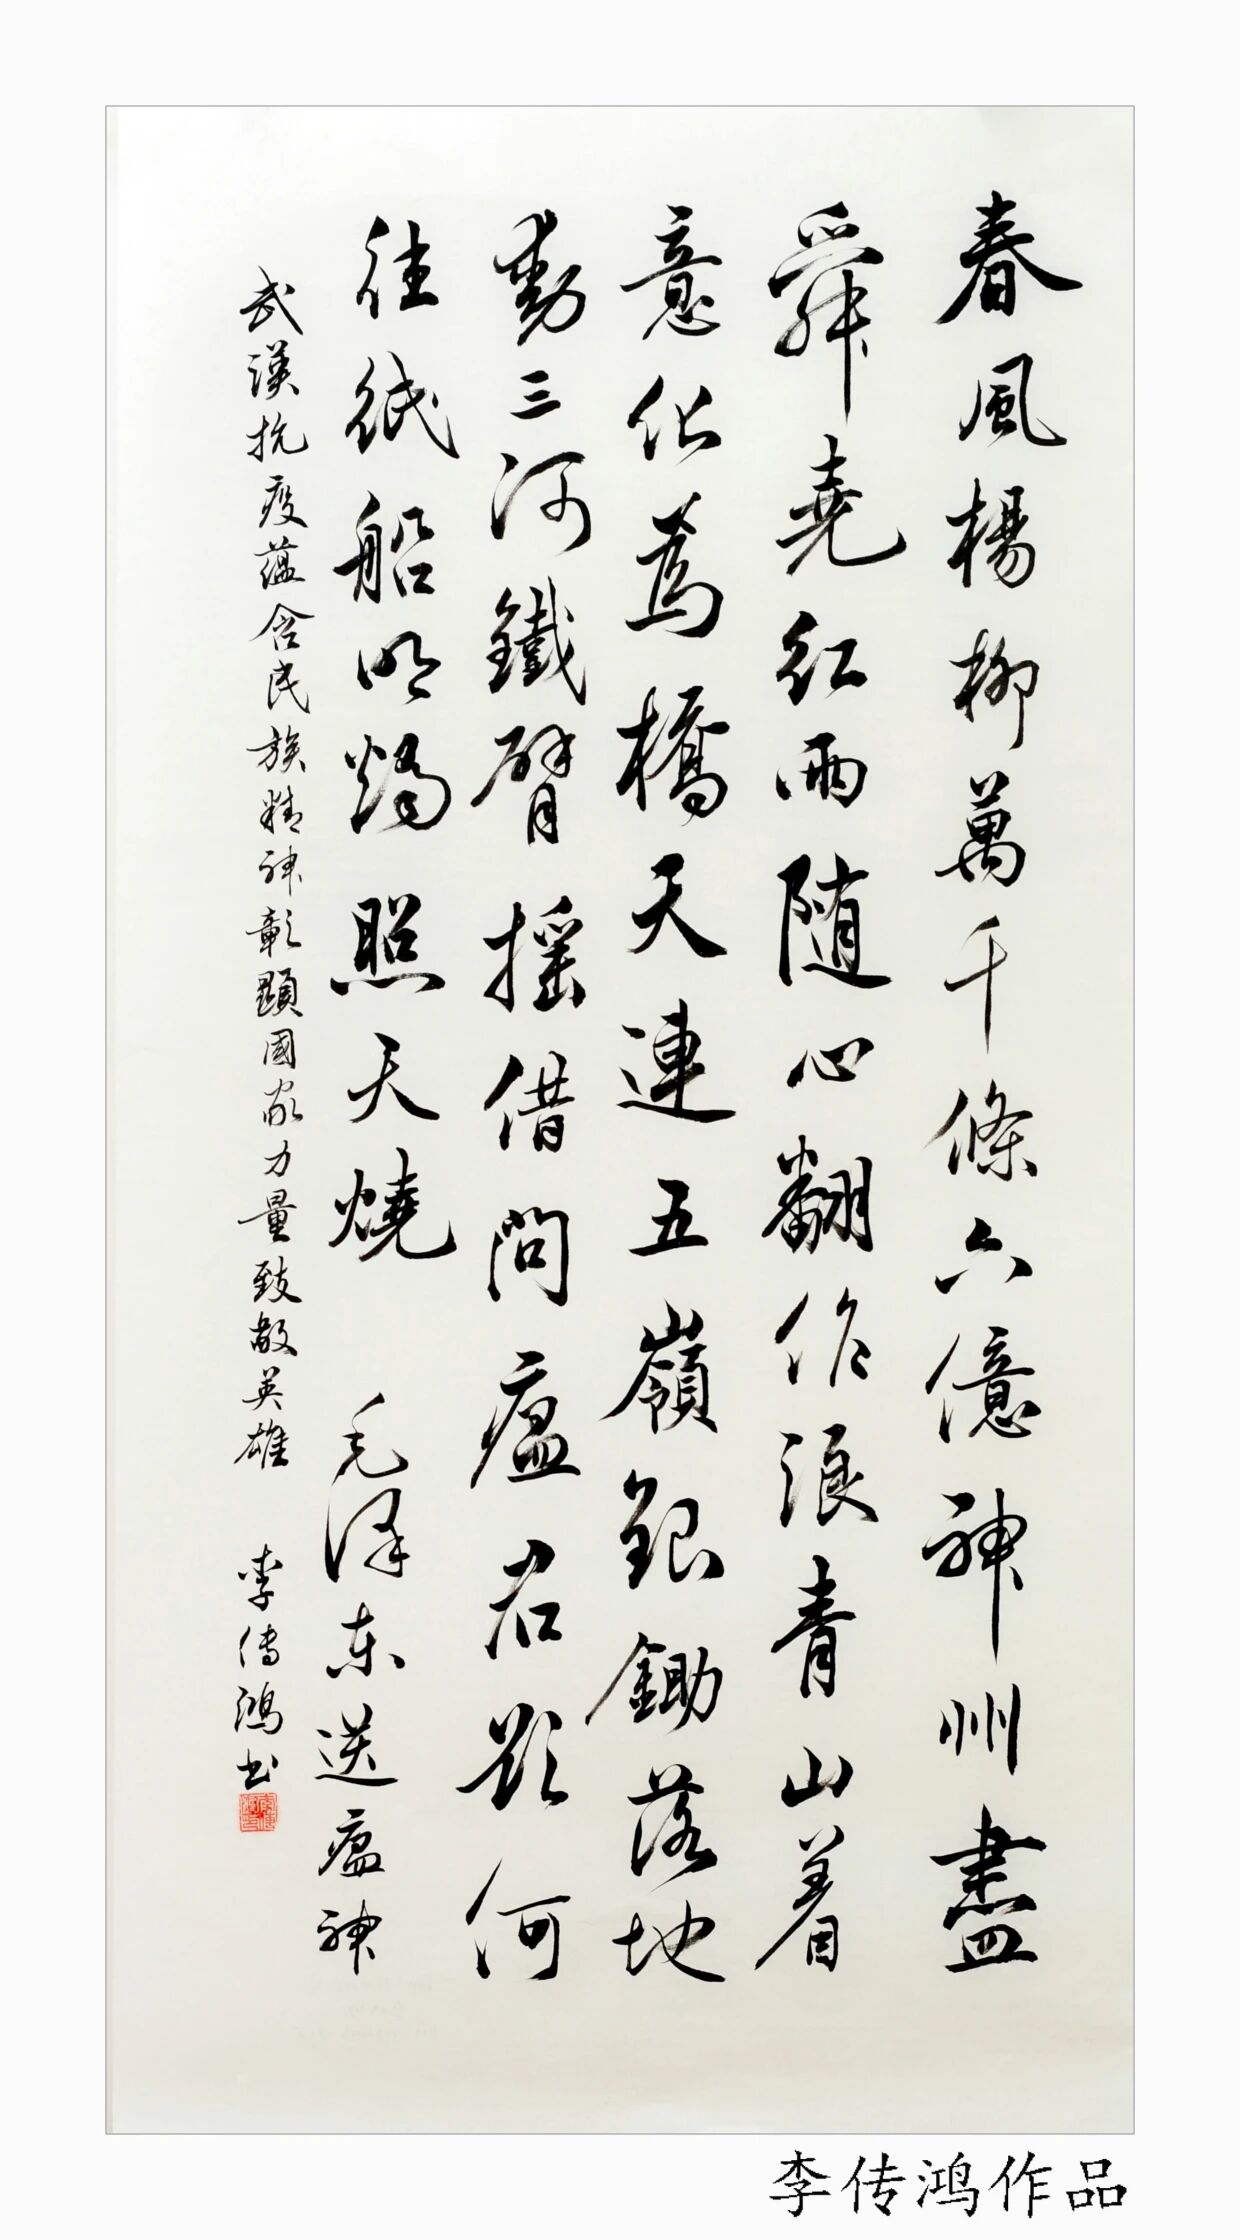 春風楊柳萬千條六億神州盡
舜堯紅雨随心翻作浪青山着
意化為橋天連五嶺銀鋤落地
動三河鐵臂摇借問瘟君欲何
往紙船明燭照天燒 毛泽东送瘟神
武漢抗疫蕴含民族精神彰顯國家力量致敬英雄 李傳鴻书
李传鸿作品